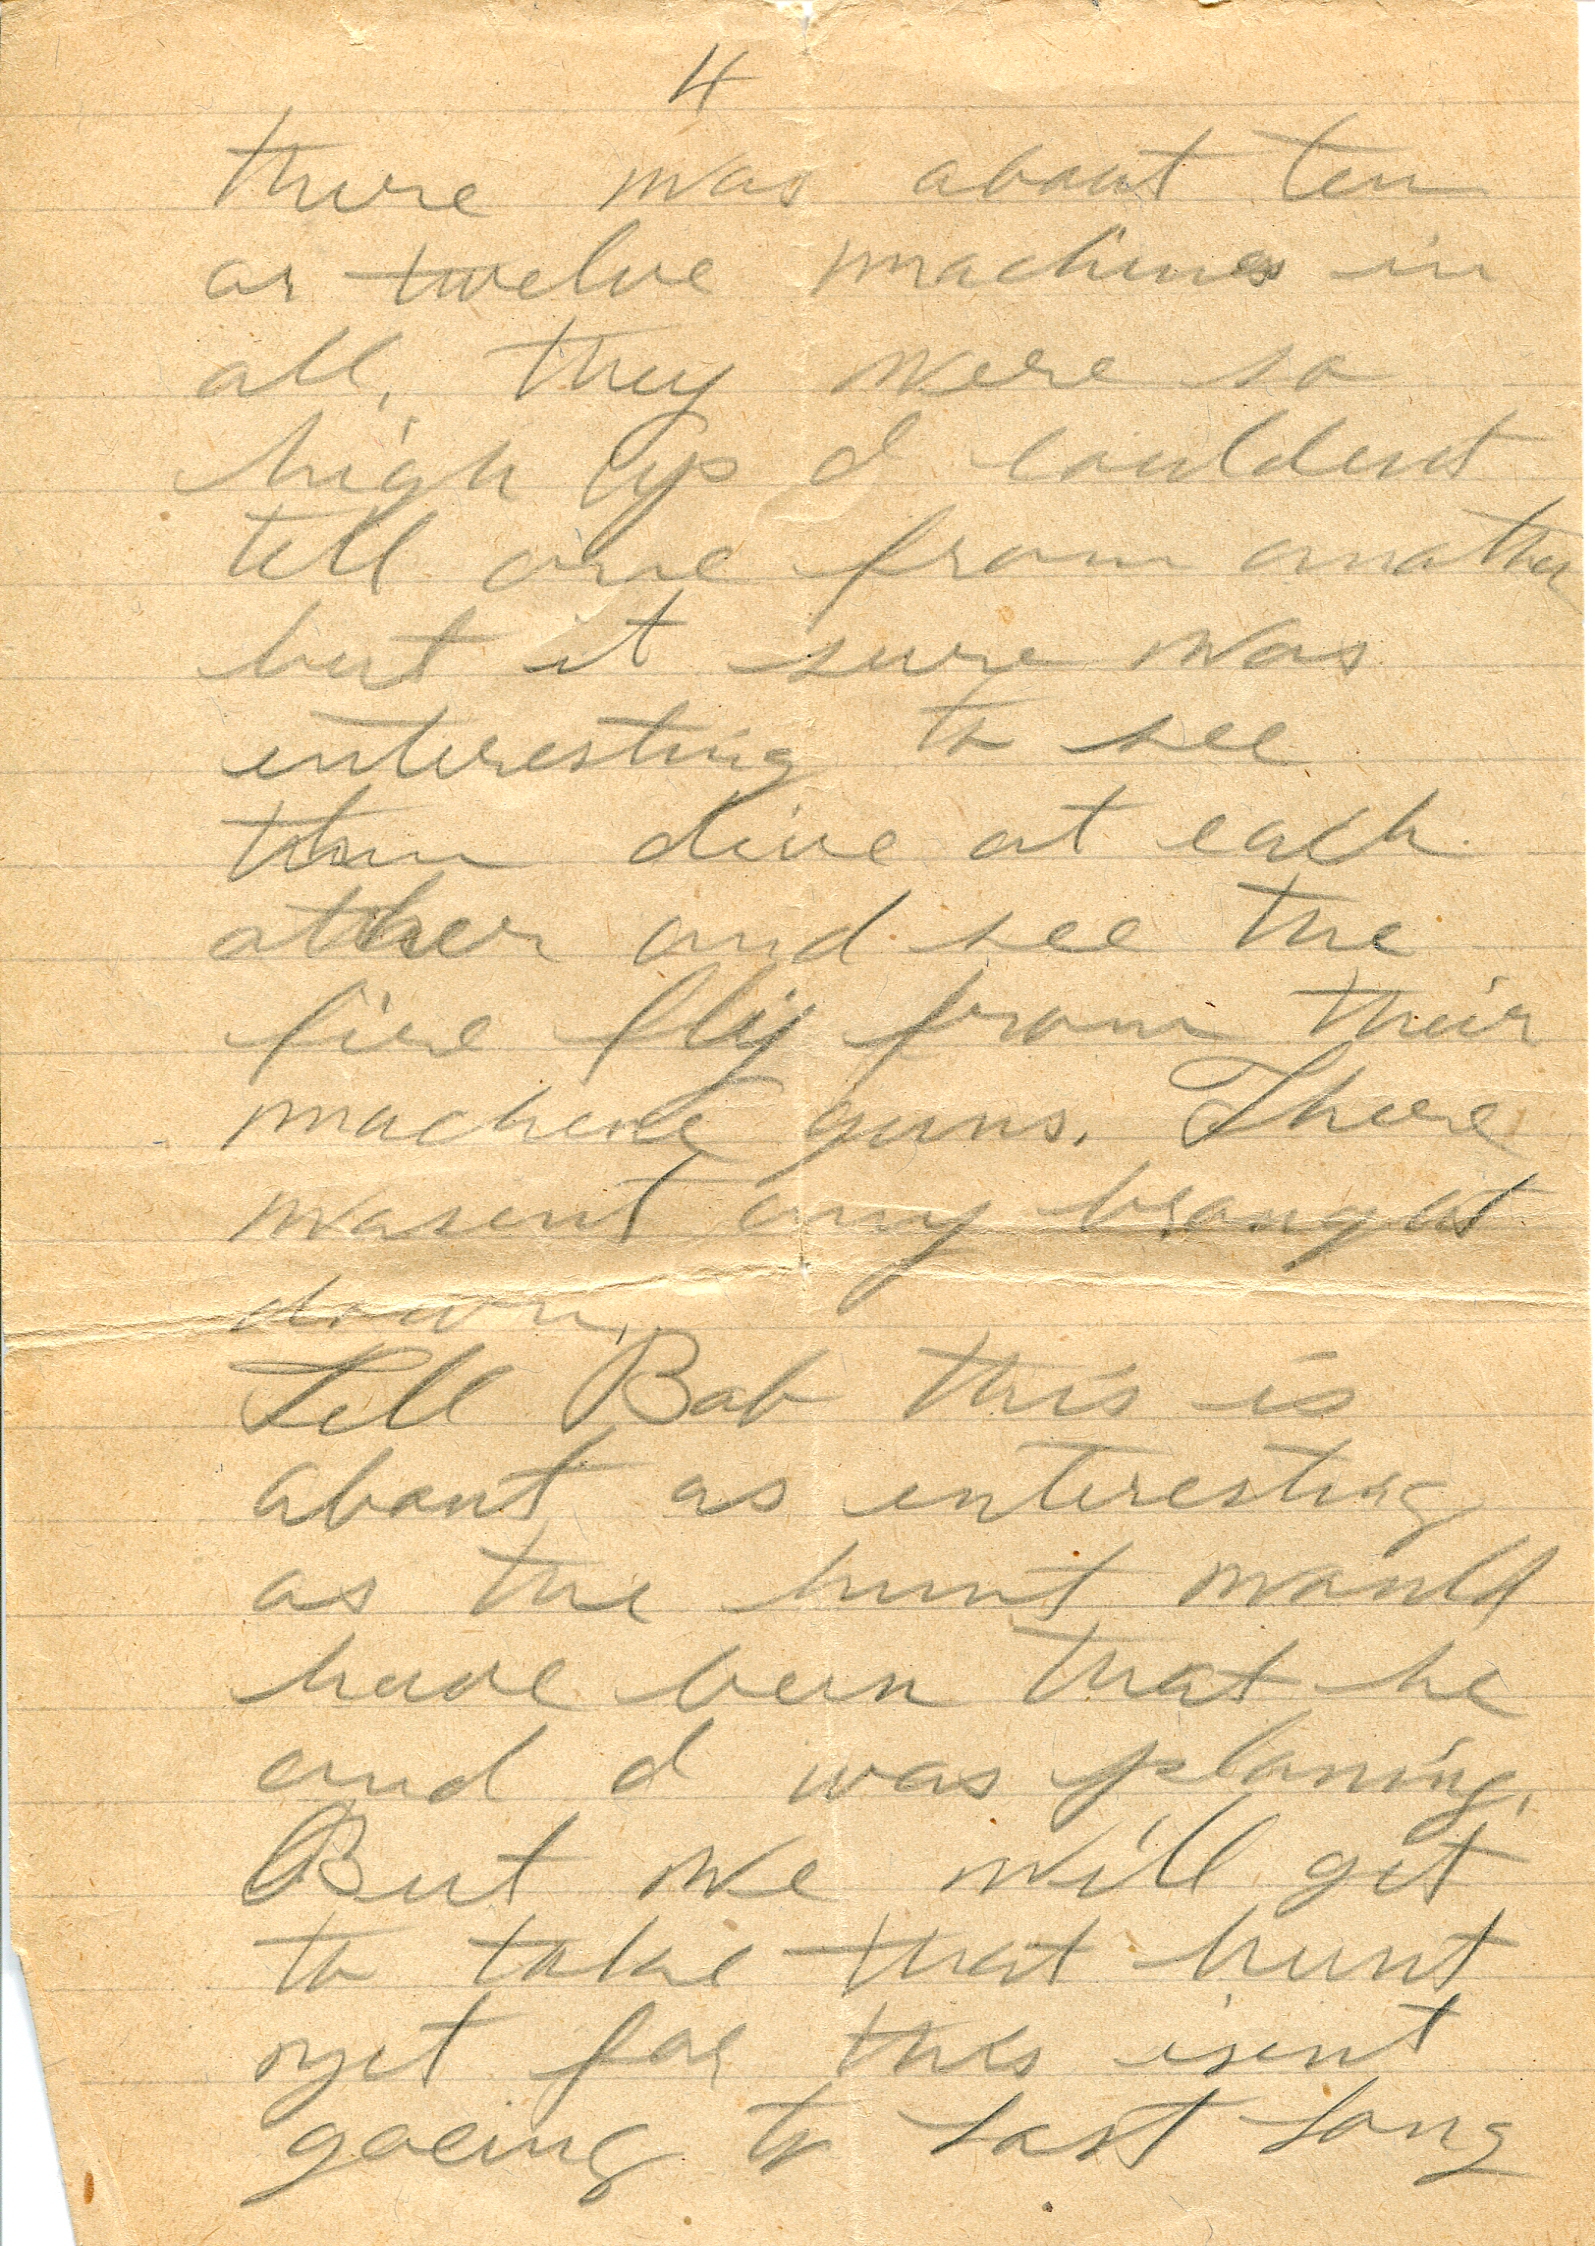 4
there was about ten
or twelve machines in
all, they were so
high up I couldent
tell one from another
but it sure was
interesting to see
them dive at each
other and see the
fire fly from their
machine guns. There
wasent any brought
down.
Tell Bob this is
about as interesting
as the hunt would
have been that he
and I was planing.
But we will get
to take that hunt
yet for this isent
goeing to last long